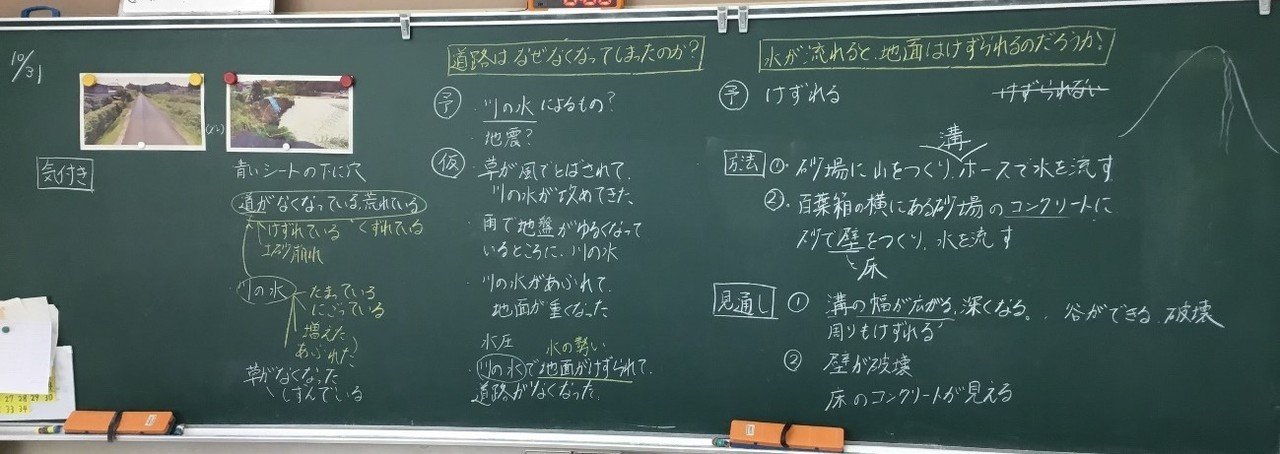 10/31
気付き
青いシートの下に穴
道がなくなっている、荒れている
けずれている くずれている
土砂崩れ
川の水
たまっている
にごっている
増えた
あふれた
草がなくなった
しずんでいる
道路はなぜなくなってしまったのか?
予
川の水によるもの?
地震?
仮
・草が風でとばされて、
川の水が攻めてきた
・雨で地盤がゆるくなって
いるところに、川の水
・川の水があふれて、
地面が重くなった
水圧
水の勢い
川の水で地面がけずられて、
道路がなくなった。
水が流れると、地面はけずられるのだろうか?
予
けずれる
けずられない
溝
方法 ①・砂場に山をつくり、ホースで水を流す
②・百葉箱の横にある砂場のコンクリートに
砂で壁をつくり、水を流す
と床
見通し ① 溝の幅が広がる、深くなる。、谷ができる、破壊
周りもけずれる
② 壁が破壊
床のコンクリートが見える
27 28 29 30
33 34